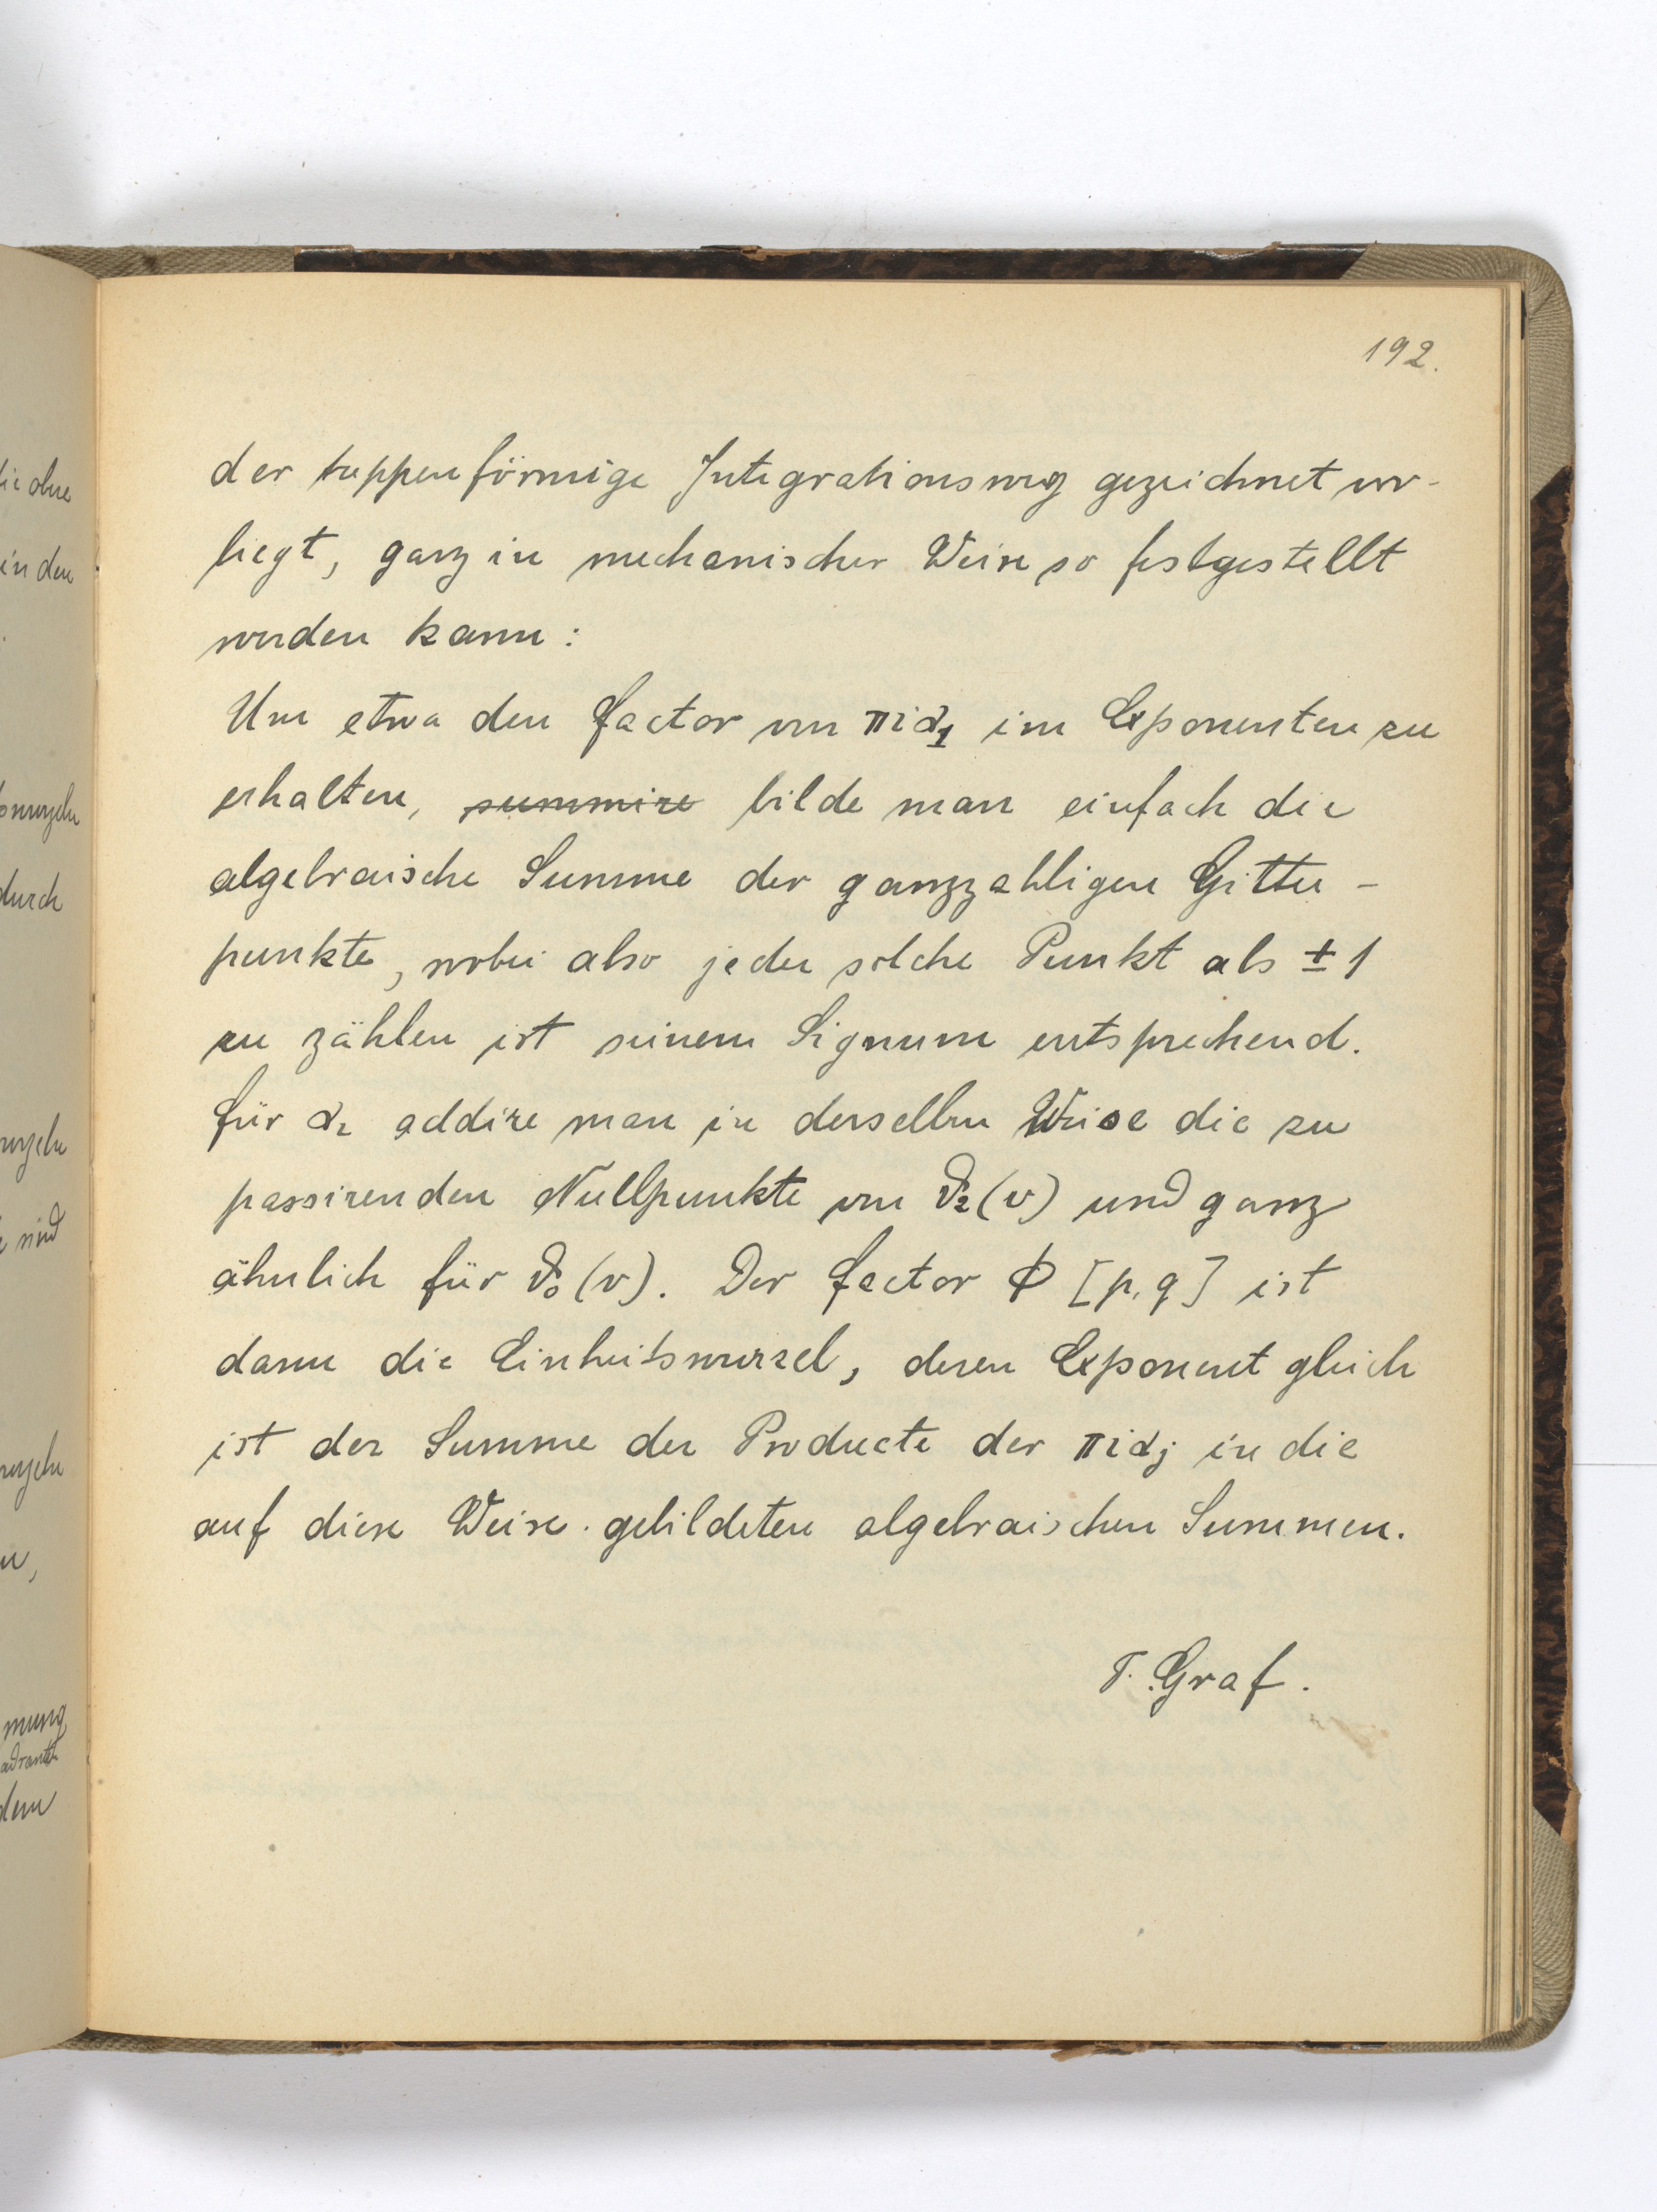 192.
der treppenförmige Integrationsweg gezeichnet vor-
liegt, ganz in mechanischer Weise so festgestellt
werden kann:
Um etwa den Factor von πiα₁ im Exponenten zu
erhalten, summire bilde man einfach die
algebraische Summe der ganzzahligen Gitter-
punkte, wobei also jeder solche Punkt als ± 1
zu zählen ist seinem Signum entsprechend.
Für α₂ addire man in derselben Weise die zu
passirenden Nullpunkte von ϑ₂(v) und ganz
ähnlich für ϑ₀(v). Der Factor Φ [p,q] ist
dann die Einheitswurzel, deren Exponent gleich
ist der Summe der Producte der πiαj in die
auf diese Weise gebildeten algebraischen Summen.
T. Graf.
die ohne
in den
durch
sind
dem